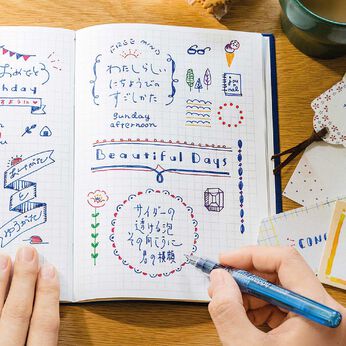 おめでとう
hday
FREE MIND
わたしらしい
にちようびの
すごしかた
sunday
afternoon
Beautiful Days
サイダーの
透ける泡
その向こうに
君の横顔
と
ゆうがた
CON